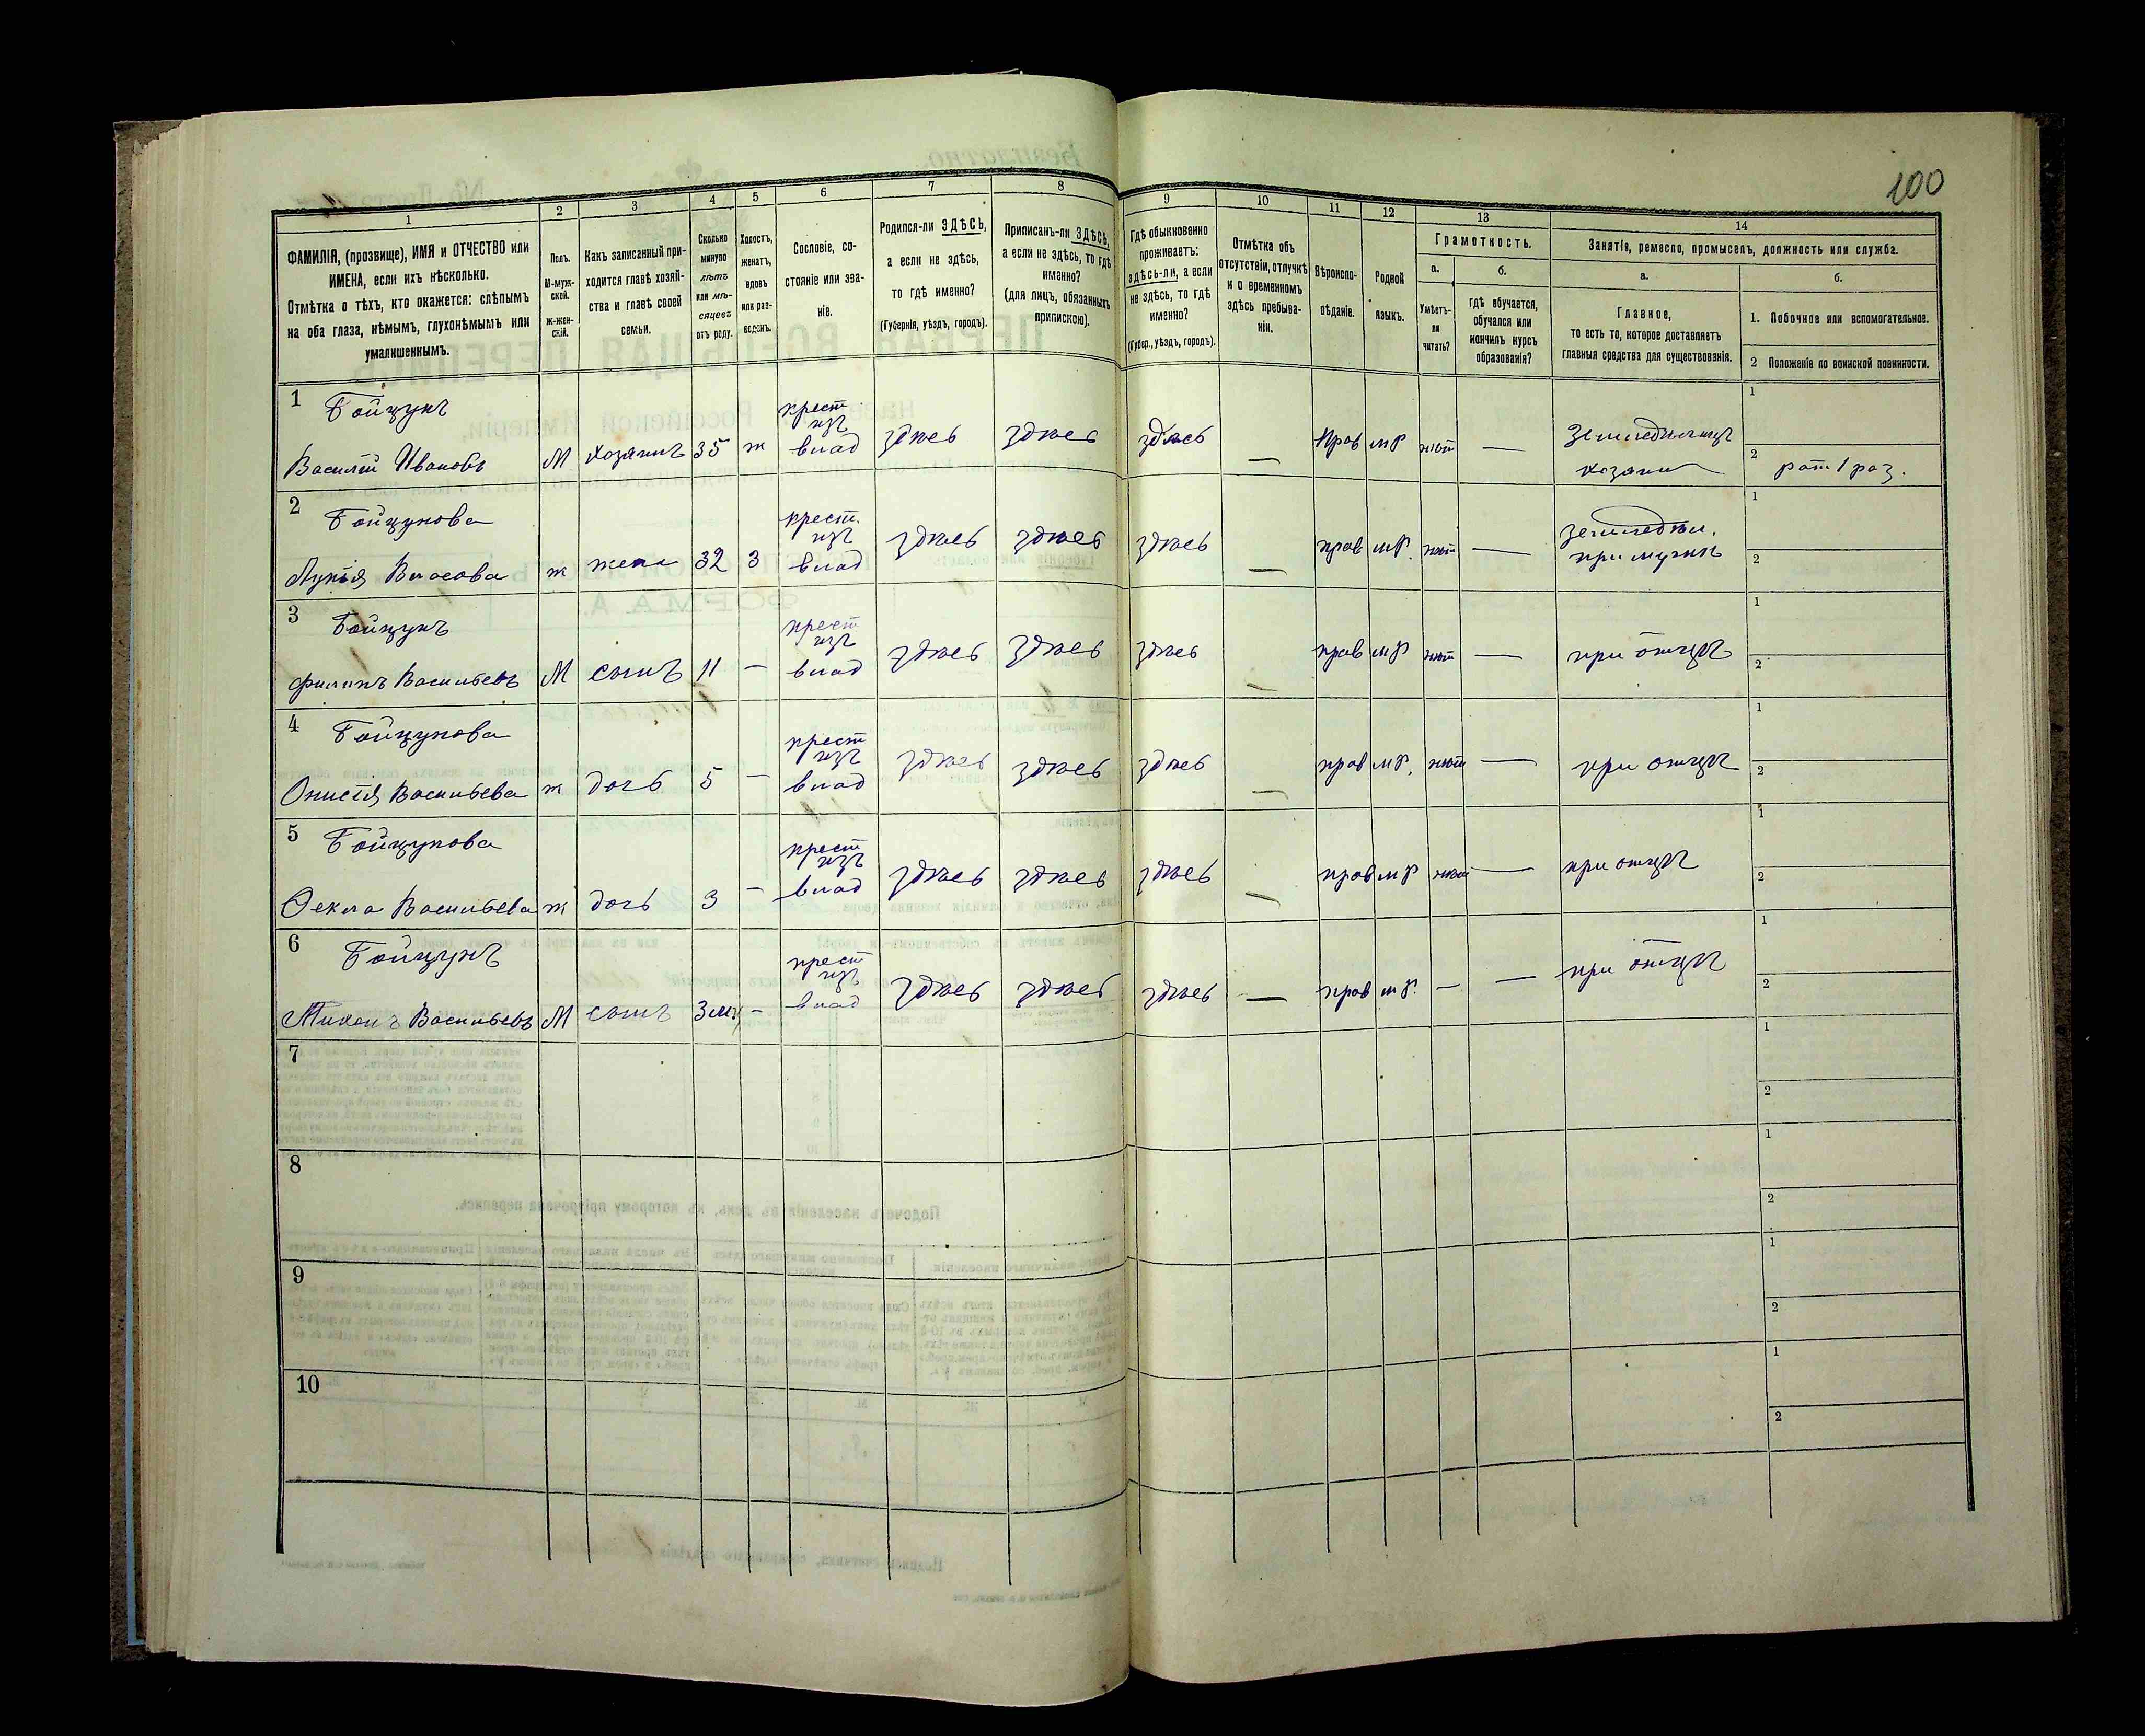 100
1 2 3 4 5 6 7 8 9 10 11 12 13 14
ФАМИЛІЯ, (прозвище), ИМЯ и ОТЧЕСТВО или
ИМЕНА, если ихъ нѣсколько.
Отмѣтка о тѣхъ, кто окажется: слѣпымъ
на оба глаза, нѣмымъ, глухонѣмымъ или
умалишеннымъ.
Полъ.
М-муж-
ской.
ж-жен-
скій.
Какъ записанный при-
ходится главѣ хозяй-
ства и главѣ своей
семьи.
Сколько
минуло
лѣтъ
или мѣ-
сяцевъ
отъ роду.
Холостъ,
женатъ,
вдовъ
или раз-
веденъ.
Сословіе, со-
стояніе или зва-
ніе.
Родился-ли ЗДѢСЬ,
а если не здѣсь,
то гдѣ именно?
(Губернія, уѣздъ, городъ).
Приписанъ-ли ЗДѢСЬ,
а если не здѣсь, то гдѣ
именно?
(для лицъ, обязанныхъ
припискою).
Гдѣ обыкновенно
проживаетъ:
здѣсь-ли, а если
не здѣсь, то гдѣ
именно?
(Губер., уѣздъ, городъ).
Отмѣтка объ
отсутствіи, отлучкѣ
и о временномъ
здѣсь пребыва-
ніи.
Вѣроиспо-
вѣданіе.
Родной
языкъ.
Грамотность.
а.
Умѣетъ-
ли
читать?
б.
гдѣ обучается,
обучался или
кончилъ курсъ
образованія?
Занятія, ремесло, промыселъ, должность или служба.
а.
Главное,
то есть то, которое доставляетъ
главныя средства для существованія.
б.
1. Побочное или вспомогательное.
2 Положеніе по воинской повинности.
1 Бойцунъ
Василій Ивановъ М хозяинъ 35 ж
крест
изъ
влад здѣсь здѣсь здѣсь — Прав мр нѣт — Земледѣлецъ
хозяин
1
2 рат. 1 раз.
2 Бойцунова
Лукія Власова ж жена 32 З
крест.
изъ
влад здѣсь здѣсь здѣсь — прав мр. нѣт — земледѣл.
при мужѣ
1
2
3 Бойцунъ
Филипъ Васильевъ М сынъ 11 —
крест
изъ
влад здѣсь здѣсь здѣсь — прав мр нѣт — при отцѣ
1
2
4 Бойцунова
Онисія Васильева ж дочь 5 —
крест
изъ
влад здѣсь здѣсь здѣсь — прав мр. нѣт — при отцѣ
1
2
5 Бойцунова
Фекла Васильева ж дочь 3 —
крест
изъ
влад здѣсь здѣсь здѣсь — прав мр нѣт — при отцѣ
1
2
6 Бойцунъ
Тихонъ Васильевъ М сынъ 3 мц —
крест
изъ
влад здѣсь здѣсь здѣсь — прав мр. — — при отцѣ
1
2
7
1
2
8
1
2
9
1
2
10
1
2